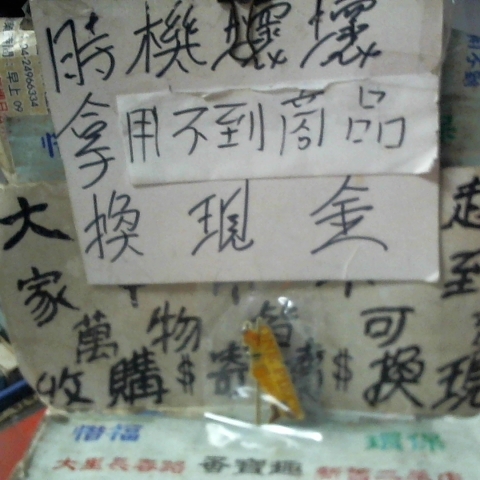 時機壞壞
拿用不到商品
換現金
大家
萬物皆可
收購$寄賣$換現
惜福 環保
大里長春路 番寶趣 新舊二手店